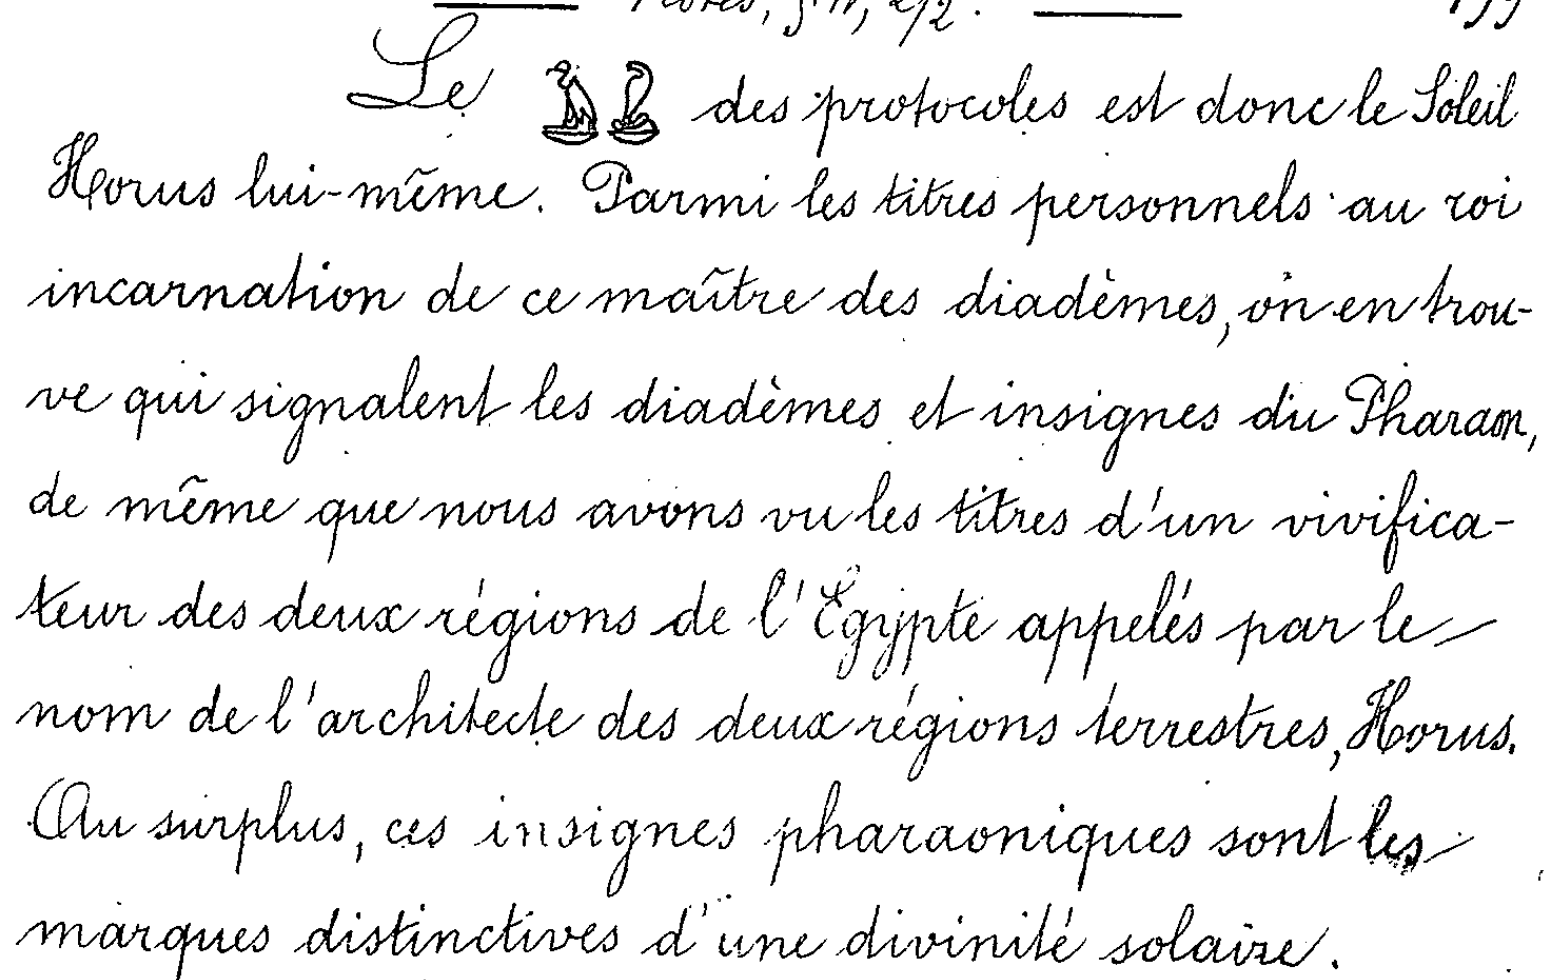 Le 𓅒 des protocoles est donc le Soleil
Horus lui-même. Parmi les titres personnels au roi
incarnation de ce maître des diadèmes, on en trou-
ve qui signalent les diadèmes et insignes du Pharaon,
de même que nous avons vu les titres d'un vivifica-
teur des deux régions de l'Égypte appelés par le
nom de l'architecte des deux régions terrestres, Horus.
Au surplus, ces insignes pharaoniques sont les
marques distinctives d'une divinité solaire.